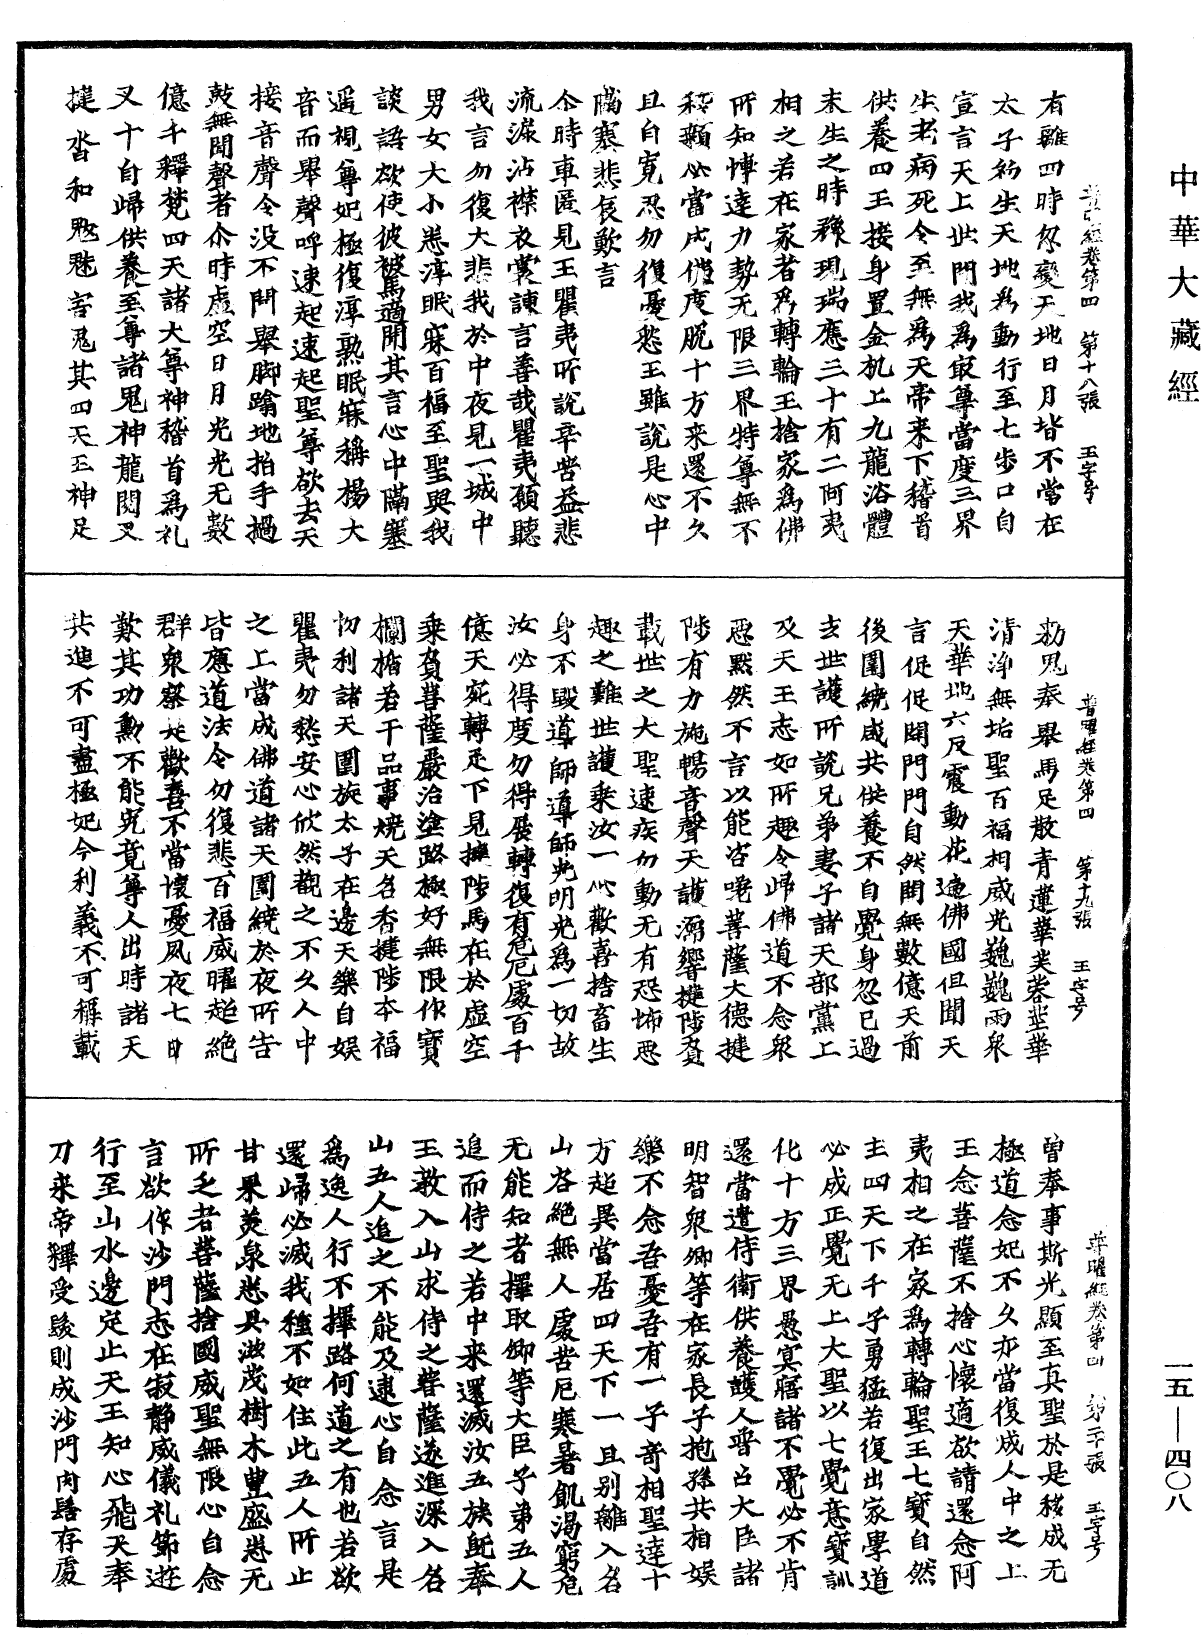 中華大藏經
普曜經卷第四 第十八張 王字号
有離四時忽變天地日月皆不當在
太子初生天地為動行至七步口自
宣言天上世間我為最尊當度三界
生老病死令至無為天帝來下稽首
供養四王接身置金机上九龍浴體
末生之時瑞現瑞應三十有二阿夷
相之若在家者為轉輪王捨家為佛
所知博達力勢无限三界特尊無不
稱賴必當成佛度脫十方来還不久
且自寬忍勿復憂愁王雖說是心中
隔塞悲哀歎言
尒時車匿見王瞿夷所說辛苦益悲
流淚沾襟衣裳諫言善哉瞿夷願聽
我言勿復大悲我於中夜見一城中
男女大小悉淳眠寐百福至聖與我
談語欲使彼被馬適聞其言心中隔塞
遥視尊妃極復淳熟眠寐稱楊大
音而舉聲呼速起速起聖尊欲去天
接音聲令没不聞舉脚蹋地拍手撾
鼓無聞聲者尒時虛空日月光光无數
億千釋梵四天諸大尊神稽首為礼
叉十自歸供養至尊諸鬼神龍閱叉
揵沓和㝹魅害鬼其四天王神足
普曜經卷第四 第十九張 王字号
勑鬼奉舉馬足散青蓮華芙蓉莖華
清淨無垢聖百福相威光巍巍雨衆
天華地六反震動花遍佛國但聞天
言促促開門門自然開無數億天前
後圍繞咸共供養不自覺身忽已過
去世護所說兄弟妻子諸天部黨上
及天王志如所趣令歸佛道不念衆
惡默然不言以能咨嗟菩薩大德揵
陟有力施暢音聲天護溺響揵陟負
載世之大聖速疾勿動无有恐怖惡
趣之難世護乘汝一心歡喜捨畜生
身不毀導師導師光明光為一切故
汝必得度勿得展轉復有危厄處百千
億天宛轉足下見揵陟馬在於虛空
乘負菩薩嚴治塗路極好無限作寶
欄楯若干品事燒天名香揵陟本福
忉利諸天圍旋太子在邊天樂自娛
瞿夷勿愁安心欣然觀之不久人中
之上當成佛道諸天圍繞於夜所告
皆應道法令勿復悲百福威曜超絕
群衆察是歡喜不當懷憂夙夜七日
歎其功勳不能究竟尊人出時諸天
共進不可盡極妃今利義不可稱載
普曜經卷第四 第二十張 王字号
曾奉事斯光顯至真聖於是稜成无
極道念妃不久亦當復成人中之上
王念菩薩不捨心懷適欲請還念阿
夷相之在家為轉輪聖王七寶自然
主四天下千子勇猛若復出家學道
必成正覺无上大聖以七覺意寶訓
化十方三界愚冥寤諸不覺必不肯
還當遣侍衛供養護人普召大臣諸
明智衆卿等在家長子抱孫共相娛
樂不念吾憂吾有一子奇相聖達十
方超異當居四天下一旦別離入名
山谷絕無人處苦厄寒暑飢渴窮危
无能知者擇取卿等大臣子弟五人
追而侍之若中来還滅汝五族旣奉
王教入山求侍之菩薩遂進深入名
山五人追之不能及逮心自念言是
為逸人行不擇路何道之有也若欲
還歸必滅我種不如住此五人所止
甘果美泉悉具滋茂樹木豊盛悉无
所乏者菩薩捨國威聖無限心自念
言欲作沙門志在寂靜威儀礼節遊
行至山水邊定止天王知心飛天奉
刀来帝釋受髮則成沙門肉髻存處
一五—四〇八